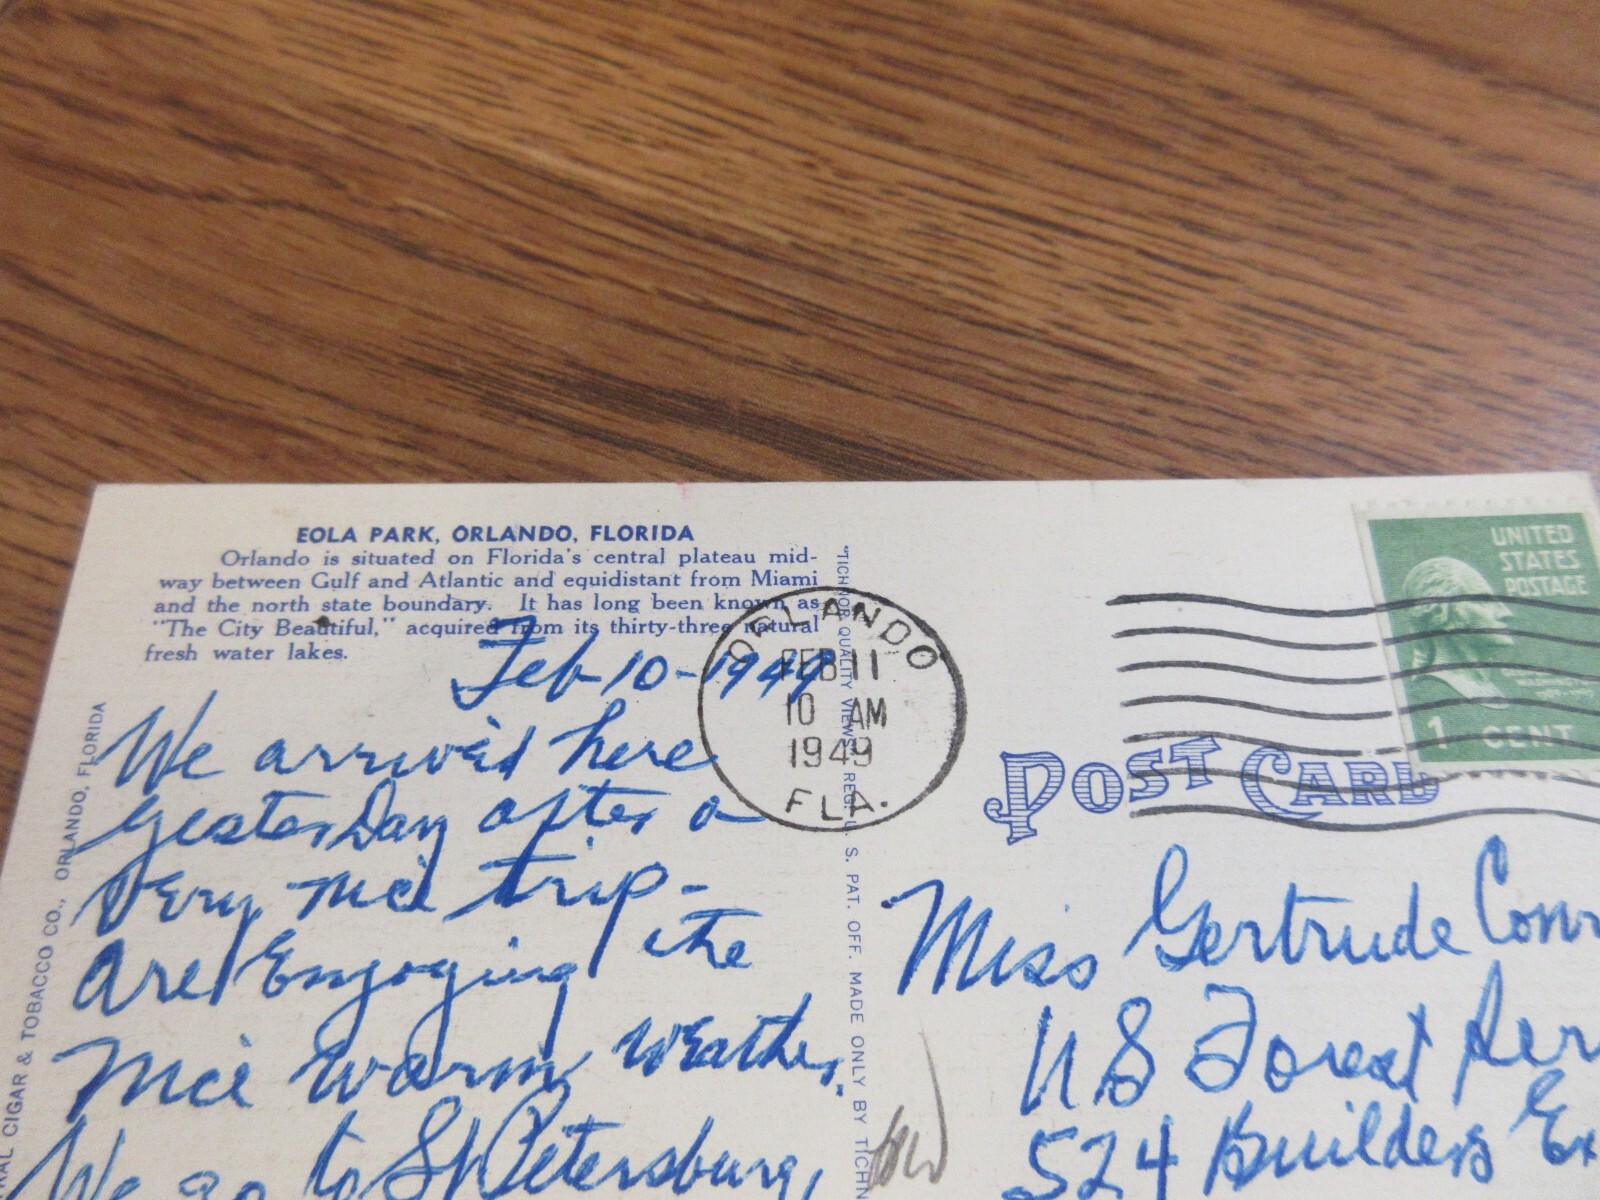 EOLA PARK, ORLANDO, FLORIDA
Orlando is situated on Florida's central plateau mid-
way between Gulf and Atlantic and equidistant from Miami
and the north state boundary. It has long been known as
"The City Beautiful," acquired from its thirty-three natural
fresh water lakes.
Feb-10-1949
We arrived here
yesterday after a
very nice trip-
are Enjoying the
nice warm weather.
We go to St Petersburg,
CIGAR & TOBACCO CO., ORLANDO, FLORIDA
"TICHNOR QUALITY VIEWS" REG. U. S. PAT. OFF. MADE ONLY BY TICHN
ORLANDO
FEB 11
10 AM
1949
FLA.
UNITED
STATES
POSTAGE
1 CENT
POST CARD
Miss Gertrude Conr
US Forest Ser
524 Builders Ex